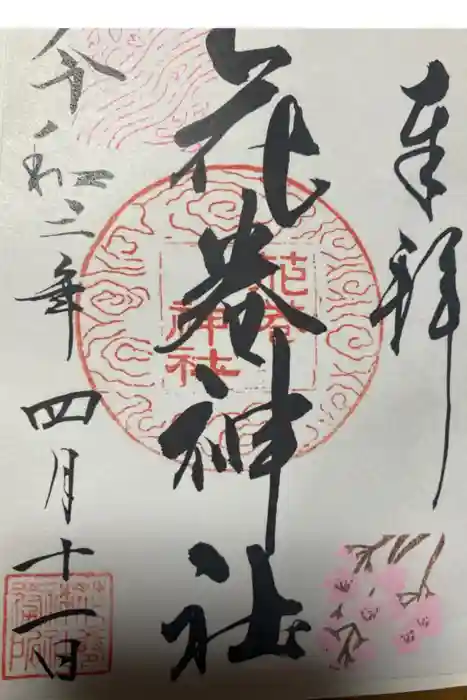 奉拝
花巻神社
花巻
神社
令和三年 四月十一日